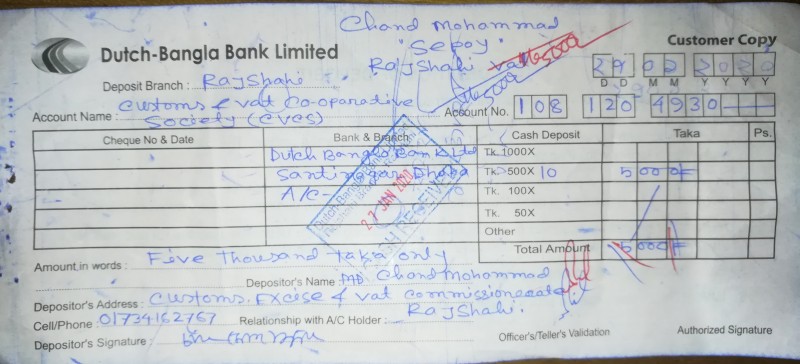 Chand Mohammad
"Sepoy"
Rajshahi vat
Dutch-Bangla Bank Limited
Customer Copy
D D M M Y Y Y Y
Deposit Branch : Rajshahi
Account Name : Customs & vat Co-oparative
Society (CVCS)
Account No. 108 120 4930
Cheque No & Date Bank & Branch Cash Deposit Taka Ps.
Dutch Bangla Bank Ltd Tk. 1000X
Santinagar Dhaka Tk. 500X 10 5000/=
A/C- Tk. 100X
27 JAN 2020
Tk. 50X
Other
Total Amount 5000/=
Amount in words : Five Thousand taka only
Depositor's Name : MD Chand Mohammad
Depositor's Address : Customs, Excise & vat Commissionerate
Rajshahi.
Cell/Phone : 01734162767 Relationship with A/C Holder :
Depositor's Signature :
Officer's/Teller's Validation Authorized Signature